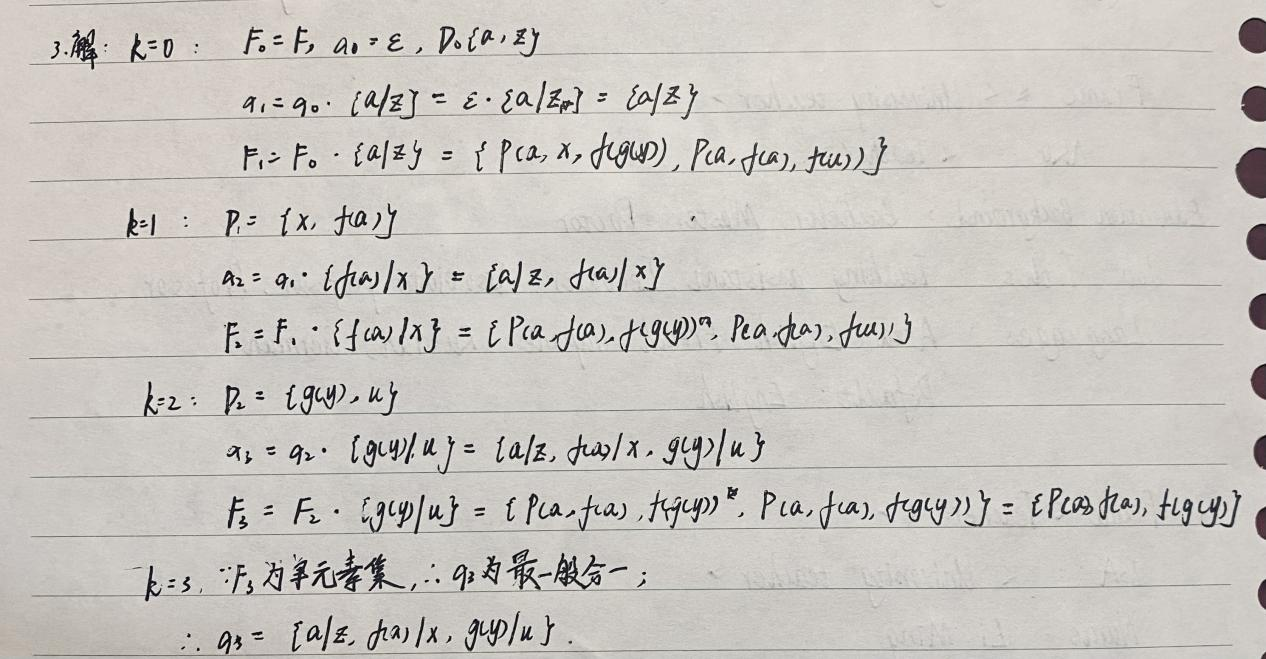 3.解: k=0: F₀=F, q₀=ε, D₀{a,z}
q₁=q₀·{a/z}=ε·{a/z}={a/z}
F₁=F₀·{a/z}={P(a,x,f(g(y)),P(a,f(a),f(u))}
k=1: D₁={x,f(a)}
q₂=q₁·{f(a)/x}={a/z,f(a)/x}
F₂=F₁·{f(a)/x}={P(a,f(a),f(g(y)),P(a,f(a),f(u))}
k=2: D₂={g(y),u}
q₃=q₂·{g(y)/u}={a/z,f(a)/x,g(y)/u}
F₃=F₂·{g(y)/u}={P(a,f(a),f(g(y)),P(a,f(a),f(g(y))}={P(a,f(a),f(g(y)}
k=3, ∵F₃为单元素集,∴q₃为最一般合一;
∴q₃={a/z,f(a)/x,g(y)/u}.